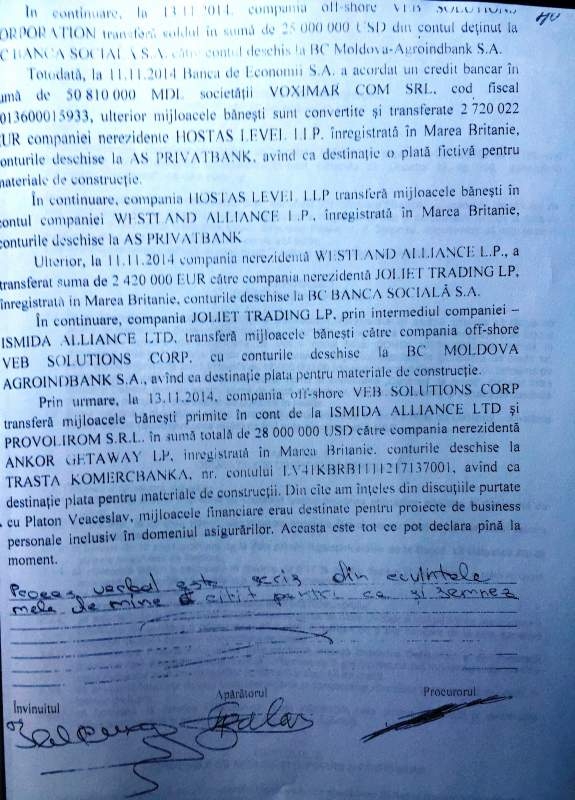 În continuare, la 13.11.2014, compania off-shore VEB SOLUTIONS
CORPORATION transferă soldul în sumă de 25 000 000 USD din contul deținut la
BC BANCA SOCIALĂ S.A. către contul deschis la BC Moldova-Agroindbank S.A.
Totodată, la 11.11.2014 Banca de Economii S.A. a acordat un credit bancar în
sumă de 50 810 000 MDL societății VOXIMAR COM SRL, cod fiscal
013600015933, ulterior mijloacele bănești sunt convertite și transferate 2 720 022
EUR companiei nerezidente HOSTAS LEVEL LLP, înregistrată în Marea Britanie,
conturile deschise la AS PRIVATBANK, avînd ca destinație o plată fictivă pentru
materiale de construcție.
În continuare, compania HOSTAS LEVEL LLP transferă mijloacele bănești în
contul companiei WESTLAND ALLIANCE L.P., înregistrată în Marea Britanie,
conturile deschise la AS PRIVATBANK
Ulterior, la 11.11.2014 compania nerezidentă WESTLAND ALLIANCE L.P., a
transferat suma de 2 420 000 EUR către compania nerezidentă JOLIET TRADING LP,
înregistrată in Marea Britanie, conturile deschise la BC BANCA SOCIALĂ S.A.
În continuare, compania JOLIET TRADING LP, prin intermediul companiei –
ISMIDA ALLIANCE LTD, transferă mijloacele bănești către compania off-shore
VEB SOLUTIONS CORP, cu conturile deschise la BC MOLDOVA
AGROINDBANK S.A., avînd ca destinație plata pentru materiale de construcție.
Prin urmare, la 13.11.2014, compania off-shore VEB SOLUTIONS CORP
transferă mijloacele bănești primite în cont de la ISMIDA ALLIANCE LTD și
PROVOLIROM S.R.L. în sumă totală de 28 000 000 USD către compania nerezidentă
ANKOR GETAWAY LP, înregistrată în Marea Britanie, conturile deschise la
TRASTA KOMERCBANKA, nr. contului LV41KBRB1111217137001, avînd ca
destinație plata pentru materiale de construcții. Din cîte am înțeles din discuțiile purtate
cu Platon Veaceslav, mijloacele financiare erau destinate pentru proiecte de business
personale inclusiv în domeniul asigurărilor. Aceasta este tot ce pot declara pînă la
moment.
Proces verbal este scris din cuvintele
mele de mine citit pentru ce și semnez
Învinuitul Apărătorul Procurorul